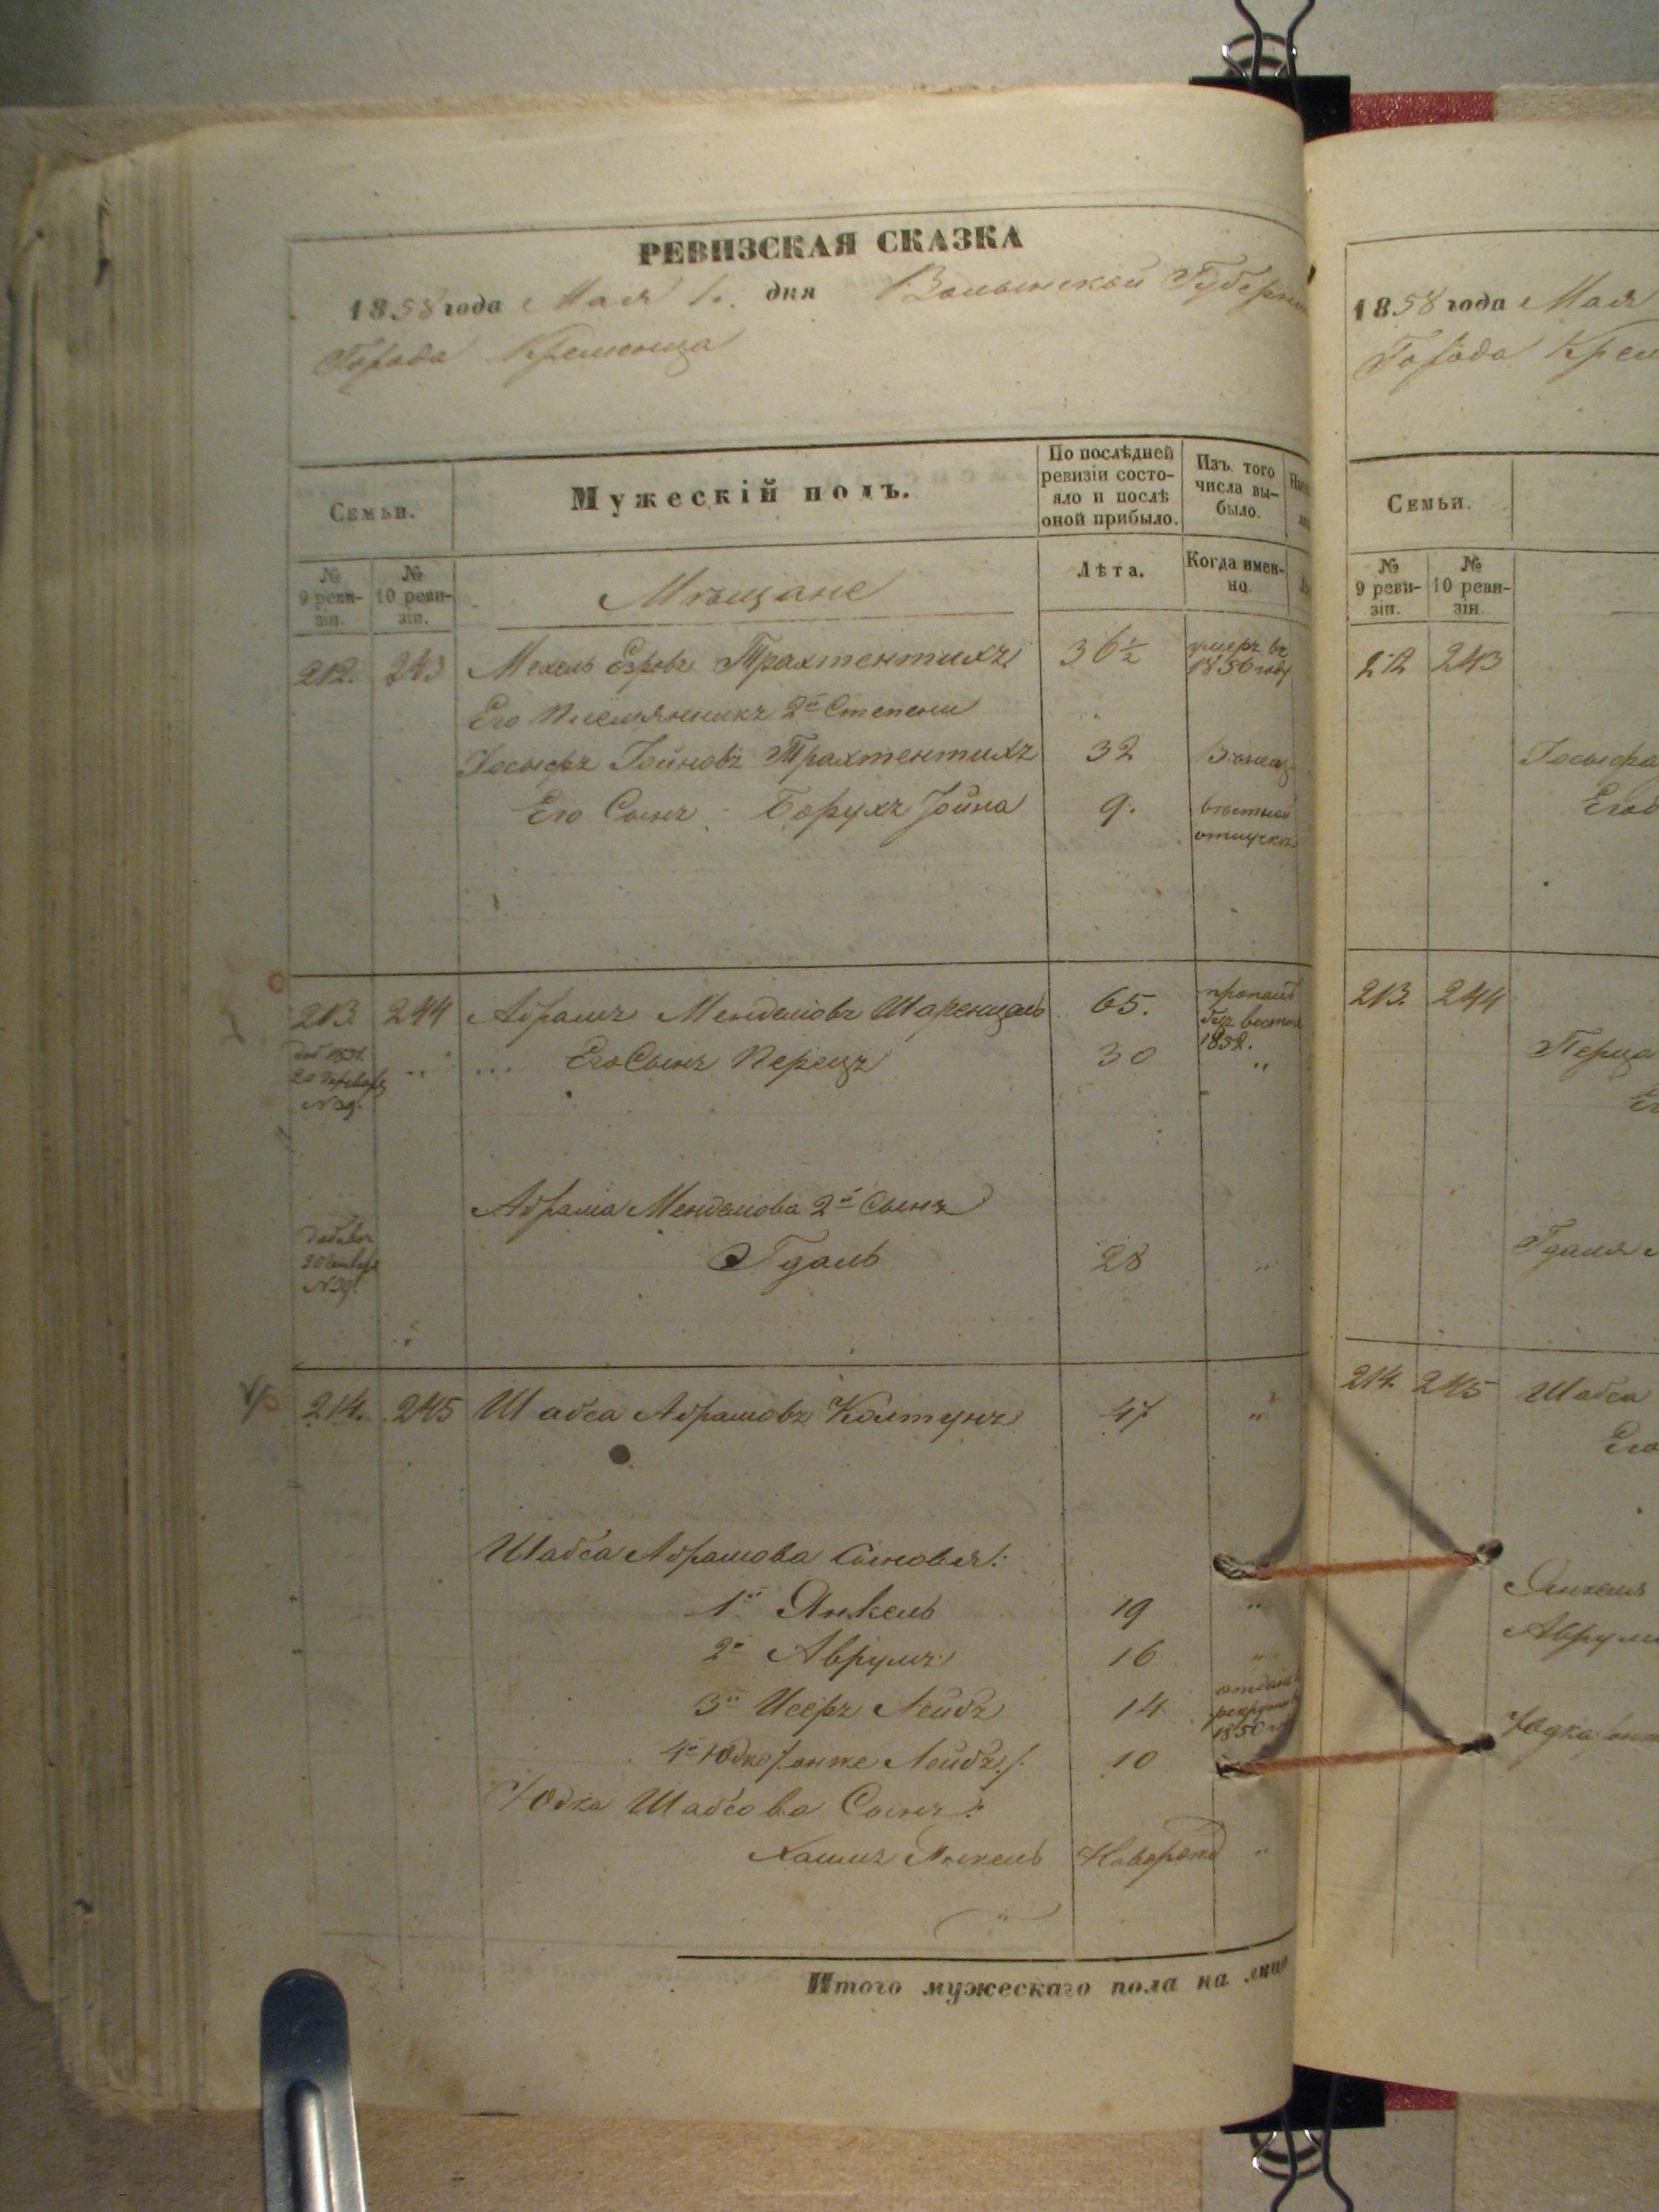 РЕВИЗСКАЯ СКАЗКА
1858 года Мая 1. дня Волынской Губерн
Города Кременца
Семьи.
Мужескій полъ.
По послѣдней ревизіи состо-
яло и послѣ оной прибыло.
Изъ того числа вы-
было.
№ 9 реви-
зіи.
№ 10 реви-
зіи.
Мѣщане
Лѣта.
Когда имен-
но.
212. 243 Мехель Езровъ Трахтентихъ 36½ умеръ въ 1856 году
Его племянникъ 2й Степени
Іосыфъ Іойновъ Трахтентихъ 32
Его Сынъ Борухъ Іойна 9. отлучкѣ
213 244 Абрамъ Менделіовъ Шаренцель 65. пропалъ безъ вести 1852.
доб 1851. 20 N39. " ... Его Сынъ Перецъ 30 "
Абрама Менделіова 2й Сынъ
N39. Гдаль 28 "
214. 245 Шабса Абрамовъ Колтунъ 47 "
Шабса Абрамова Сыновья:
1й Янкель 19 "
2й Аврумъ 16 "
3й Исеръ Лейбъ 14 отданъ 1850
4й Юдко /: онже Лейбъ :/ 10
Юдка Шабсова Сынъ:
Хаимъ Янкель Ноборожд "
Итого мужескаго пола на лицо
1858 года Мая
Города Крем
Семьи.
№ 9 реви-
зіи.
№ 10 реви-
зіи.
212 243
Іосыфа
Его
213. 244
Перца
Ег
Гдаля
214. 245 Шабса
Его
Янкеля
Аврума
Юдка